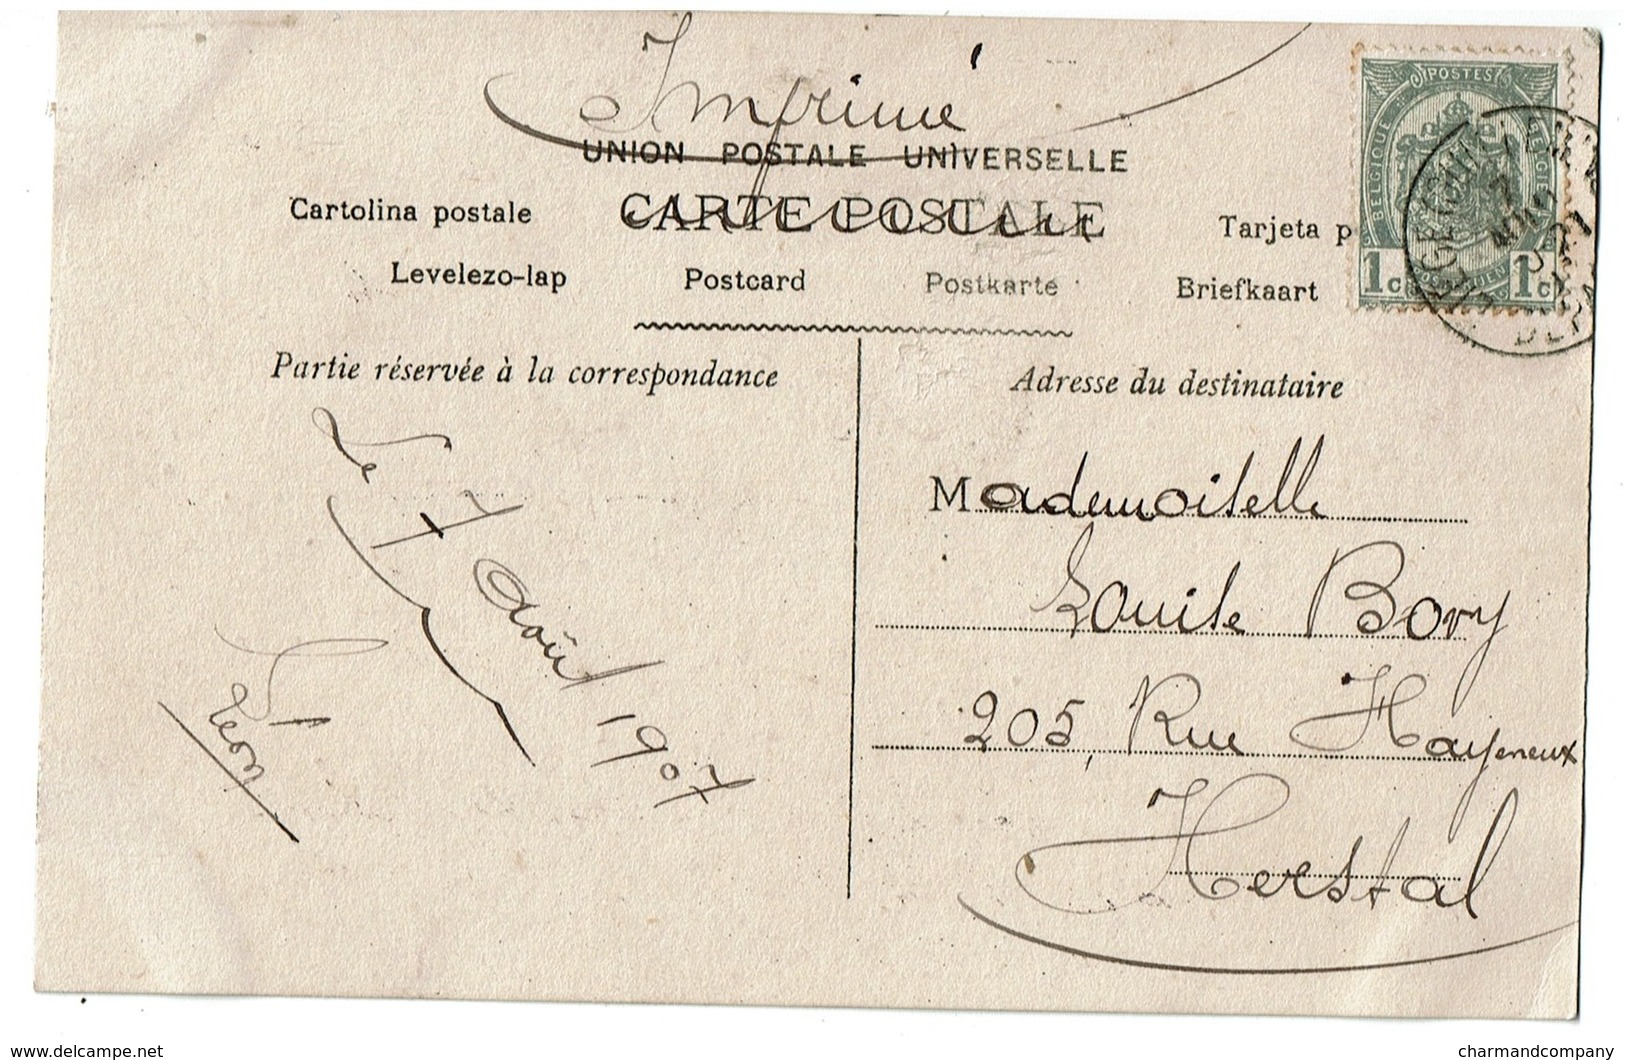 Imprimé
UNION POSTALE UNIVERSELLE
CARTE POSTALE
Cartolina postale
Tarjeta p
Levelezo-lap
Postcard
Postkarte
Briefkaart
POSTES
BELGIQUE
BELGIË
1c
1c
Partie réservée à la correspondance
Adresse du destinataire
Le 7 Août 1907
Léon
Mademoiselle
Louise Bovy
205, Rue Hayeneux
Herstal
www.delcampe.net
charmandcompany